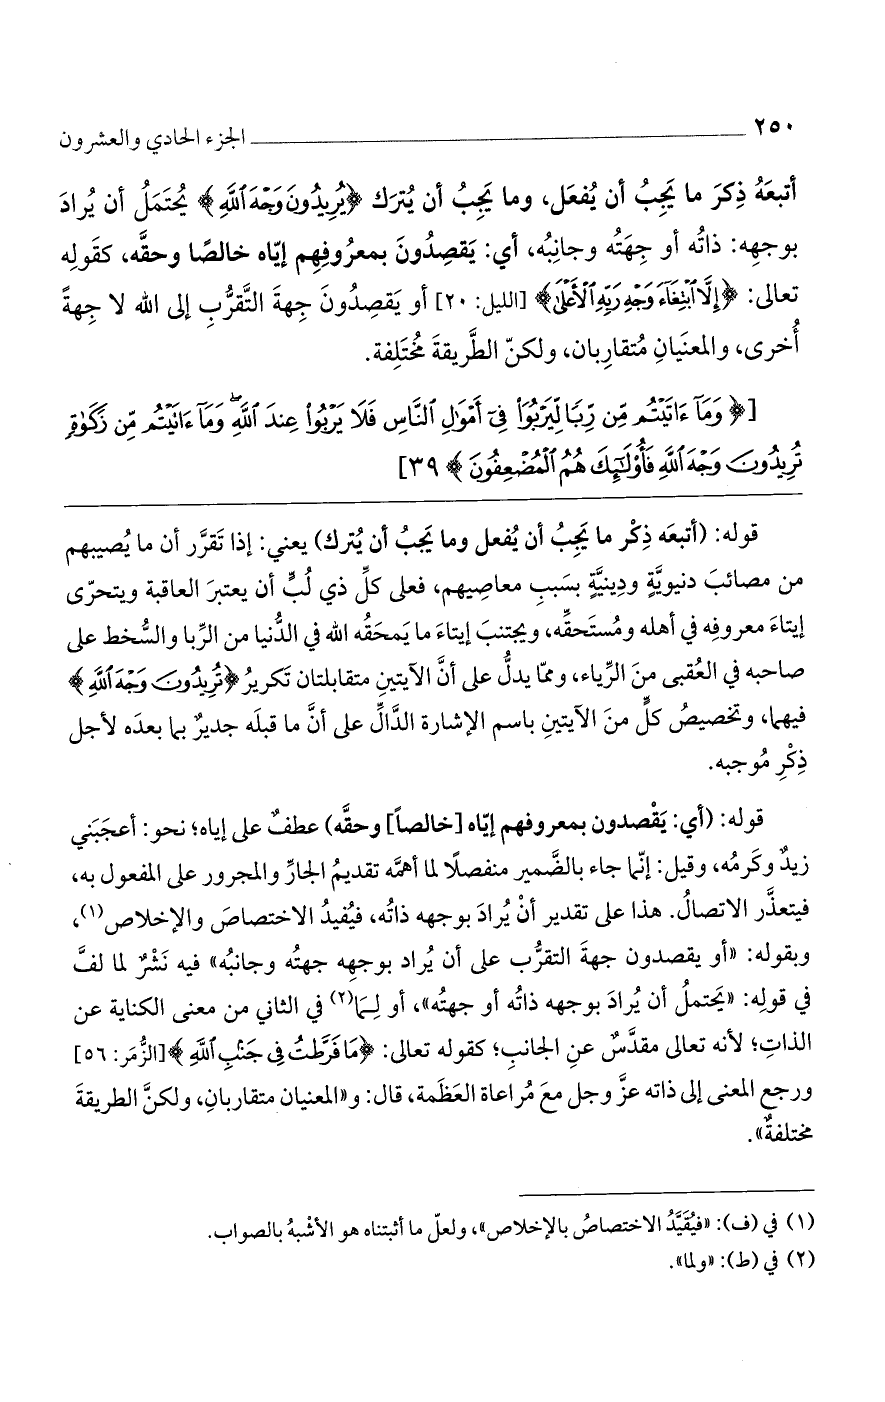 ٢٥٠ ـــــــــــــــــ الجزء الحادي والعشرون
أتبعَهُ ذِكرَ ما يَجِبُ أن يُفعَل، وما يَجِبُ أن يُترَك ﴿يُرِيدُونَ وَجْهَ ٱللَّهِ﴾ يُحتَمَلُ أن يُرادَ
بوجهِه: ذاتُه أو جِهَتُه وجانِبُه، أي: يَقصِدُونَ بمعرُوفِهم إيّاه خالصًا وحقَّه، كقَولِه
تعالى: ﴿إِلَّا ٱبْتِغَآءَ وَجْهِ رَبِّهِ ٱلْأَعْلَىٰ﴾ [الليل: ٢٠] أو يَقصِدُونَ جِهةَ التَّقرُّبِ إلى الله لا جِهةً
أُخرى، والمعنَيانِ مُتقارِبان، ولكنّ الطَّريقةَ مُختَلِفة.
[﴿وَمَآ ءَاتَيْتُم مِّن رِّبًا لِّيَرْبُوَا۟ فِىٓ أَمْوَٰلِ ٱلنَّاسِ فَلَا يَرْبُوا۟ عِندَ ٱللَّهِ ۖ وَمَآ ءَاتَيْتُم مِّن زَكَوٰةٍ
تُرِيدُونَ وَجْهَ ٱللَّهِ فَأُو۟لَـٰٓئِكَ هُمُ ٱلْمُضْعِفُونَ﴾ ٣٩]
قوله: (أتبعَه ذِكْر ما يَجِبُ أن يُفعل وما يَجبُ أن يُترك) يعني: إذا تَقرَّر أن ما يُصيبهم
من مصائبَ دنيويَّةٍ ودِينيَّةٍ بسَببِ معاصيهم، فعلى كلِّ ذي لُبٍّ أن يعتبرَ العاقبة ويتحرّى
إيتاءَ معروفِه في أهله ومُستَحقِّه، ويجتنبَ إيتاءَ ما يَمحَقُه الله في الدُّنيا من الرِّبا والسُّخط على
صاحبه في العُقبى منَ الرِّياء، وممّا يدلُّ على أنَّ الآيتينِ متقابلتان تَكريرُ ﴿تُرِيدُونَ وَجْهَ ٱللَّهِ﴾
فيهما، وتخصيصُ كلٍّ منَ الآيتينِ باسم الإشارة الدَّالِّ على أنَّ ما قبلَه جديرٌ بما بعدَه لأجل
ذِكْرِ مُوجبه.
قوله: (أي: يَقْصدون بمعروفهم إيّاه [خالصاً] وحقَّه) عطفٌ على إياه؛ نحو: أعجَبَني
زيدٌ وكَرمُه، وقيل: إنّما جاء بالضَّمير منفصلًا لما أهمَّه تقديمُ الجارِّ والمجرور على المفعول به،
فيتعذَّر الاتصالُ. هذا على تقدير أنْ يُرادَ بوجهه ذاتُه، فيُفيدُ الاختصاصَ والإخلاص(١)،
وبقوله: «أو يقصدون جهةَ التقرُّب على أن يُراد بوجهِه جهتُه وجانبُه» فيه نَشْرٌ لما لفَّ
في قولِه: «يَحتملُ أن يُرادَ بوجهه ذاتُه أو جهتُه»، أو لِـمَا(٢) في الثاني من معنى الكناية عن
الذاتِ؛ لأنه تعالى مقدَّسٌ عنِ الجانبِ؛ كقوله تعالى: ﴿مَا فَرَّطتُ فِى جَنۢبِ ٱللَّهِ﴾ [الزُّمَر: ٥٦]
ورجع المعنى إلى ذاته عزَّ وجل معَ مُراعاة العَظَمة، قال: و«المعنيان متقاربانِ، ولكنَّ الطريقةَ
مختلفةٌ».
(١) في (ف): «فيُقَيَّدُ الاختصاصُ بالإخلاص»، ولعلّ ما أثبتناه هو الأشْبهُ بالصواب.
(٢) في (ط): «ولما».